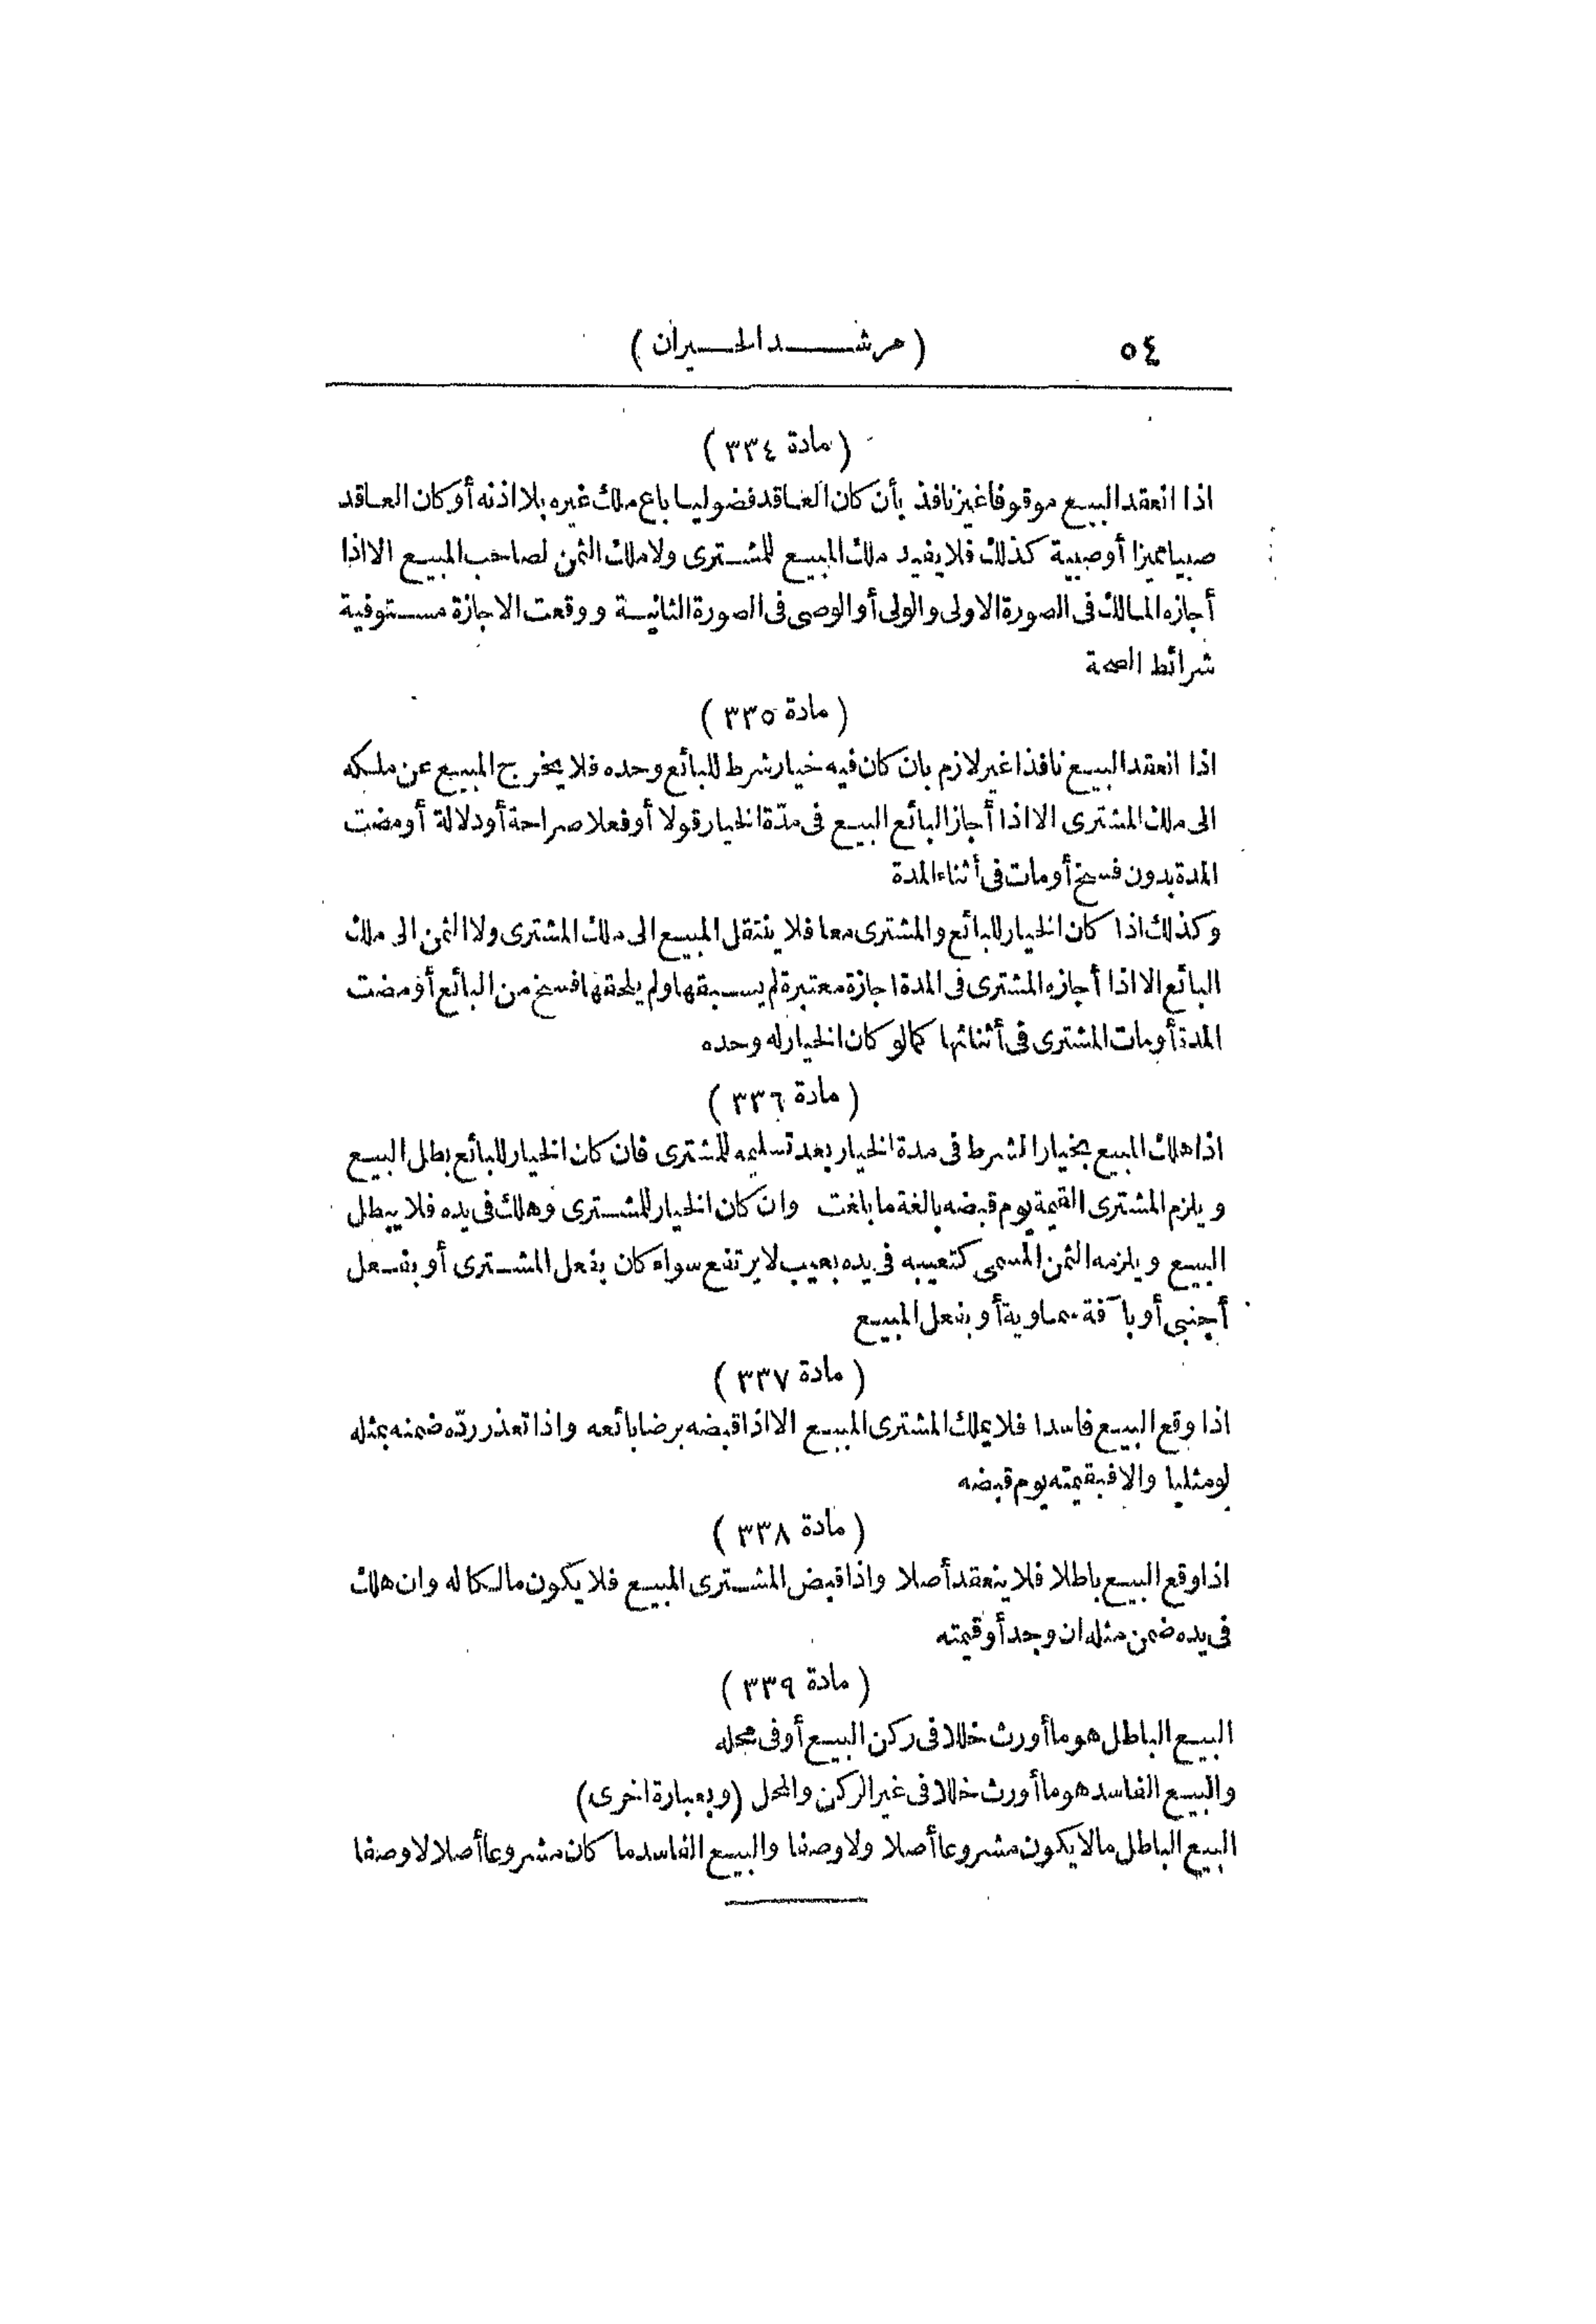 ٥٤ (مرشد الحيران)
(مادة ٣٣٤)
اذا انعقد البيع موقوفا غير نافذ بأن كان العاقد فضوليا باع ملك غيره بلا اذنه أو كان العاقد
صبيا مميزا أو صبية كذلك فلا يفيد ملك المبيع للمشترى ولا ملك الثمن لصاحب المبيع الا اذا
أجازه المالك فى الصورة الاولى والولى أو الوصى فى الصورة الثانية ووقعت الاجازة مستوفية
شرائط الصحة
(مادة ٣٣٥)
اذا انعقد البيع نافذا غير لازم بان كان فيه خيار شرط للبائع وحده فلا يخرج المبيع عن ملكه
الى ملك المشترى الا اذا أجاز البائع البيع فى مدّة الخيار قولا أو فعلا صراحة أو دلالة أو مضت
المدة بدون فسخ أو مات فى أثناء المدة
وكذلك اذا كان الخيار للبائع والمشترى معا فلا ينتقل المبيع الى ملك المشترى ولا الثمن الى ملك
البائع الا اذا أجازه المشترى فى المدة اجازة معتبرة لم يسبقها ولم يلحقها فسخ من البائع أو مضت
المدة أو مات المشترى فى أثنائها كما لو كان الخيار له وحده
(مادة ٣٣٦)
اذا هلك المبيع بخيار الشرط فى مدة الخيار بعد تسليمه للمشترى فان كان الخيار للبائع بطل البيع
ويلزم المشترى القيمة يوم قبضه بالغة ما بلغت وان كان الخيار للمشترى وهلك فى يده فلا يبطل
البيع ويلزمه الثمن المسمى كتعيبه فى يده بعيب لا يرتفع سواء كان بفعل المشترى أو بفعل
أجنبى أو بآفة سماوية أو بفعل المبيع
(مادة ٣٣٧)
اذا وقع البيع فاسدا فلا يملك المشترى المبيع الا اذا قبضه برضا بائعه واذا تعذر ردّه ضمنه بمثله
لو مثليا والا فبقيمته يوم قبضه
(مادة ٣٣٨)
اذا وقع البيع باطلا فلا ينعقد أصلا واذا قبض المشترى المبيع فلا يكون مالكا له وان هلك
فى يده ضمن مثله ان وجد أو قيمته
(مادة ٣٣٩)
البيع الباطل هو ما أورث خللا فى ركن البيع أو فى محله
والبيع الفاسد هو ما أورث خللا فى غير الركن والمحل (وبعبارة اخرى)
البيع الباطل ما لا يكون مشروعا أصلا ولا وصفا والبيع الفاسد ما كان مشروعا أصلا لا وصفا